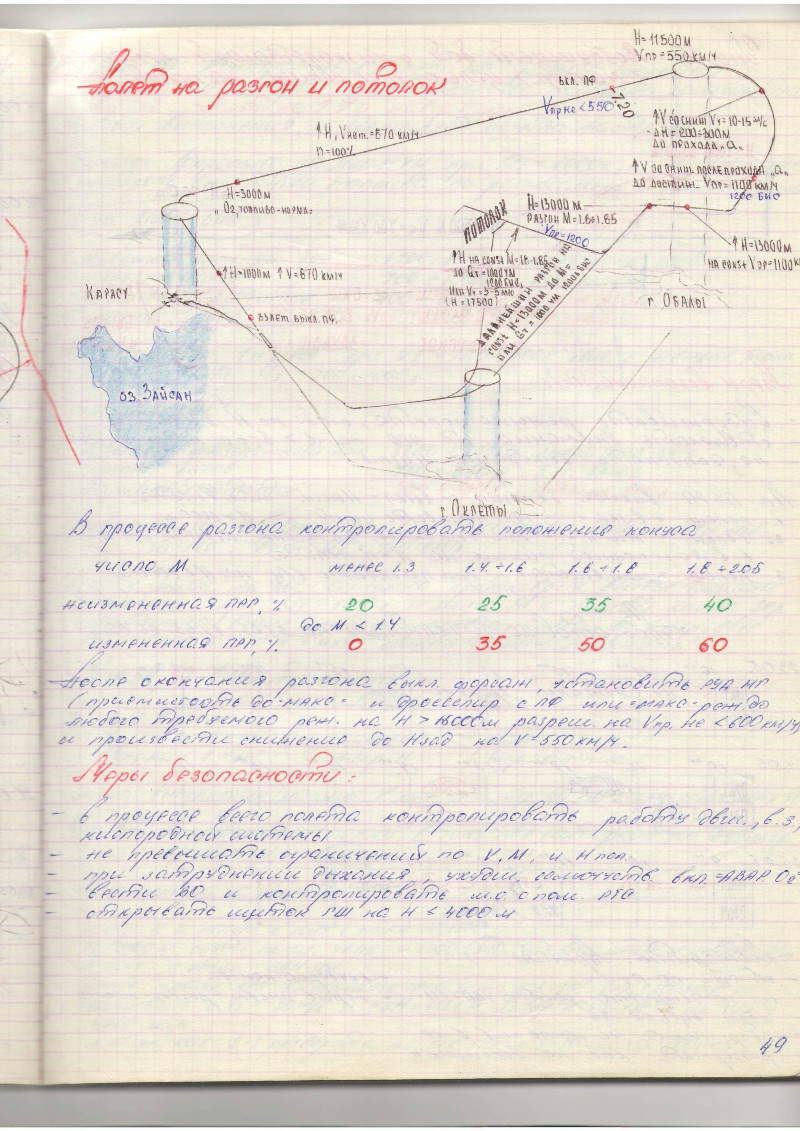 Полет на разгон и потолок
H=11500м
Vпр=550км/ч
вкл. ПФ
Vпр не <550
1:20
↑H, Vист.=870 км/ч
n=100%
↑V со сниж Vy=10-15 м/с
ΔH=200÷300м
до прохода „а"
↑V со сниж. после прохода „а"
до достиж. Vпр=1100км/ч
1200 БИС
H=3000м
„O₂, топливо-норма"
H=13000м
разгон M=1.8÷1.85
Vпр=1200
потолок
↑H=13000м
на const Vпр=1100к
↑H на const M=1.8-1.85
до Qт=1000 УМ
1200 бис
или Vy=3-5 м/с
(H=17500)
дальнейший разгон на
const H=13000м до M=
или Qт=1000 УМ
↑H>1000м ↑V=870 км/ч
Карасу
взлет выкл. ПФ.
г Обалы
оз. Зайсан
г. Окпеты
В процессе разгона контролировать положение конуса
число M менее 1.3 1.4÷1.6 1.6÷1.8 1.8÷2.05
неизмененная прг, % 20 25 35 40
до M < 1.4
измененная прг, % 0 35 50 60
После окончания разгона выкл. форсаж, установить РУД МГ
(приемистость до "макс" и дросселир с ПФ или "макс" реж. до
любого требуемого реж. на H > 15000м разреш на Vпр. не < 600 км/ч)
и произвести снижение до Hзад на V=550 км/ч.
Меры безопасности:
- в процессе всего полета контролировать работу двиг., в.з.,
кислородной системы
- не превышать ограничений по V, M, и H пол.
- при затруднении дыхания, ухудш. самочувств. вкл. "АВАР O₂"
- вести ВО и контролировать м.с. с пом. РТС
- открывать щиток ГШ на H ≤ 4000м
49